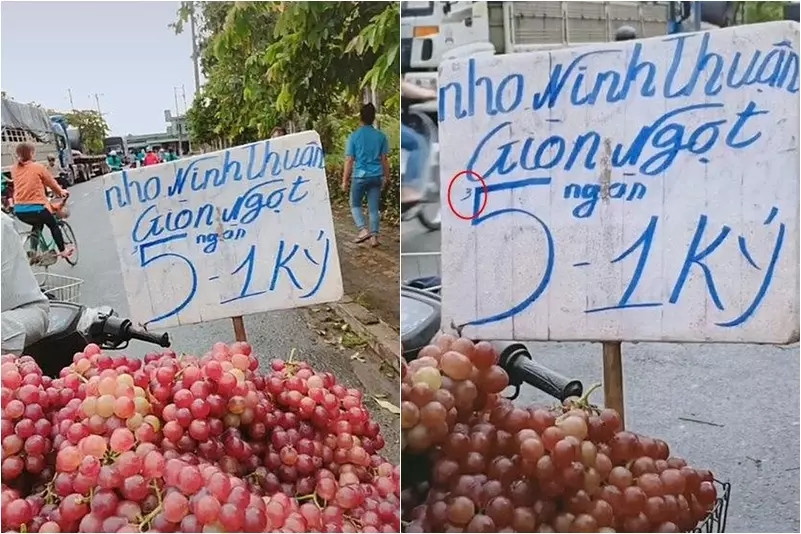 nho Ninh Thuận
Giòn Ngọt
5 ngàn - 1 Ký
nho Ninh Thuận
Giòn Ngọt
3 5 ngàn - 1 Ký